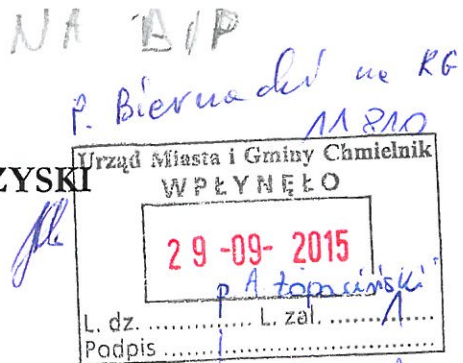 NA BIP
p. Biernacki na RG
11810
Urząd Miasta i Gminy Chmielnik
ZYSKI
WPŁYNĘŁO
29-09-2015
p A. Łopaciński
L. dz. .............. L. zał. ......1......
Podpis ..............................